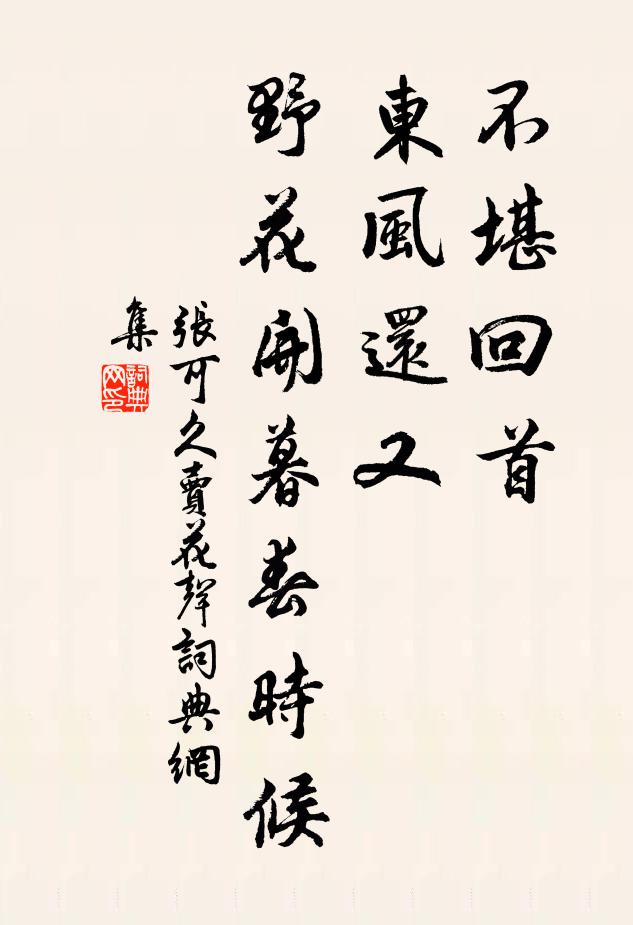 不堪回首
東風還又
野花開暮春時候
張可久賣花聲詞典網
集
詞典
网印